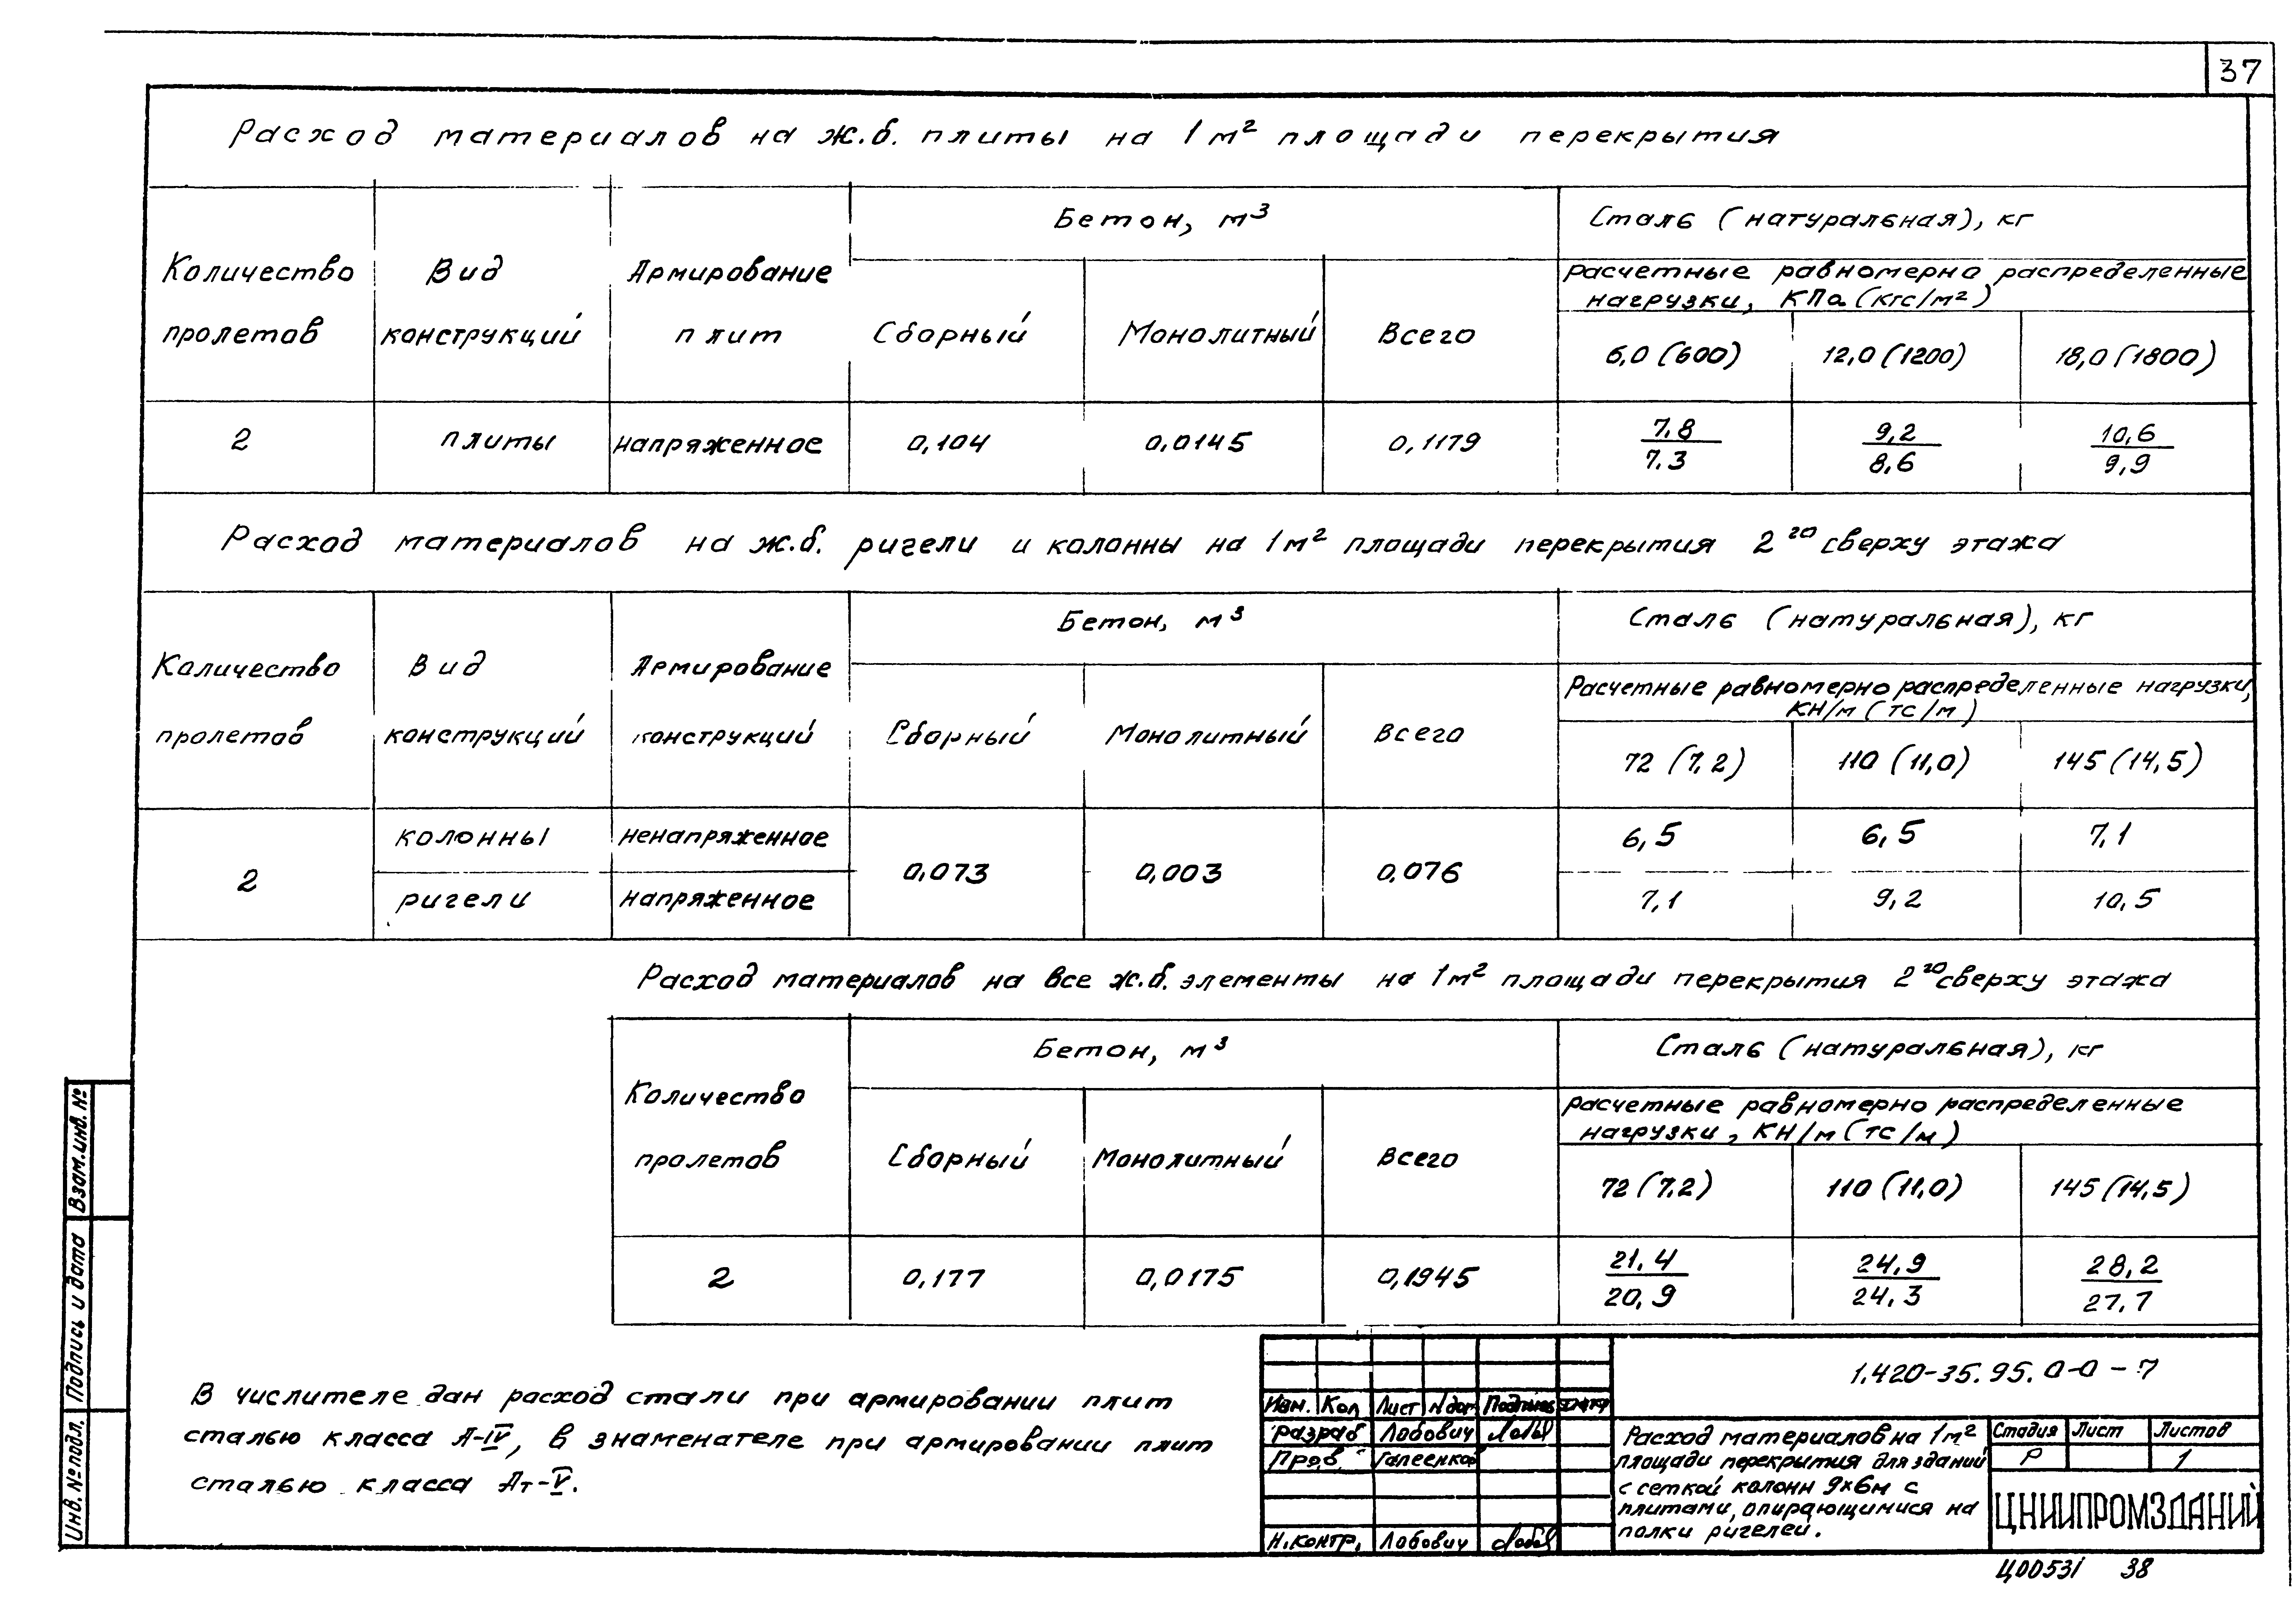 37
Расход материалов на ж.б. плиты на 1м² площади перекрытия
Количество пролетов
Вид конструкций
Армирование плит
Бетон, м³
Сборный
Монолитный
Всего
Сталь (натуральная), кг
расчетные равномерно распределенные
нагрузки, КПа (кгс/м²)
6,0 (600)
12,0 (1200)
18,0 (1800)
2 плиты напряженное 0,104 0,0145 0,1179 7,8/7,3 9,2/8,6 10,6/9,9
Расход материалов на ж.б. ригели и колонны на 1м² площади перекрытия 2го сверху этажа
Количество пролетов
Вид конструкций
Армирование конструкций
Бетон, м³
Сборный
Монолитный
Всего
Сталь (натуральная), кг
Расчетные равномерно распределенные нагрузки,
КН/м (тс/м)
72 (7,2)
110 (11,0)
145 (14,5)
2
колонны ненапряженное
0,073 0,003 0,076
6,5 6,5 7,1
ригели напряженное 7,1 9,2 10,5
Расход материалов на все ж.б. элементы на 1м² площади перекрытия 2го сверху этажа
Количество пролетов
Бетон, м³
Сборный
Монолитный
Всего
Сталь (натуральная), кг
расчетные равномерно распределенные
нагрузки, КН/м (тс/м)
72 (7,2)
110 (11,0)
145 (14,5)
2 0,177 0,0175 0,1945 21,4/20,9 24,9/24,3 28,2/27,7
В числителе дан расход стали при армировании плит
сталью класса А-IV, в знаменателе при армировании плит
сталью класса Ат-V.
Взам.инв.№
Подпись и дата
Инв.№подл.
1.420-35.95.0-0-7
Изм. Кол Лист №док Подпись Дата
Разраб Лобович
Пров.
Н.контр. Лобович
Расход материалов на 1м²
площади перекрытия для зданий
с сеткой колонн 9х6м с
плитами, опирающимися на
полки ригелей.
Стадия Лист Листов
Р 1
ЦНИИПРОМЗДАНИЙ
Ц00531 38